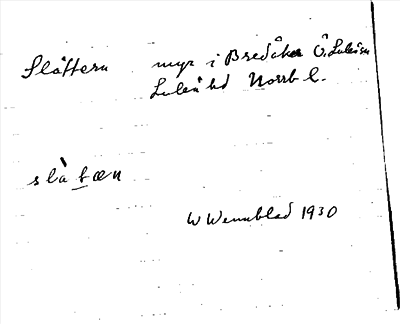 Slåttern myr i Bredåker Ö. Luleå sn
Luleå hd Norrb l.
slàtæn
W Wennblad 1930